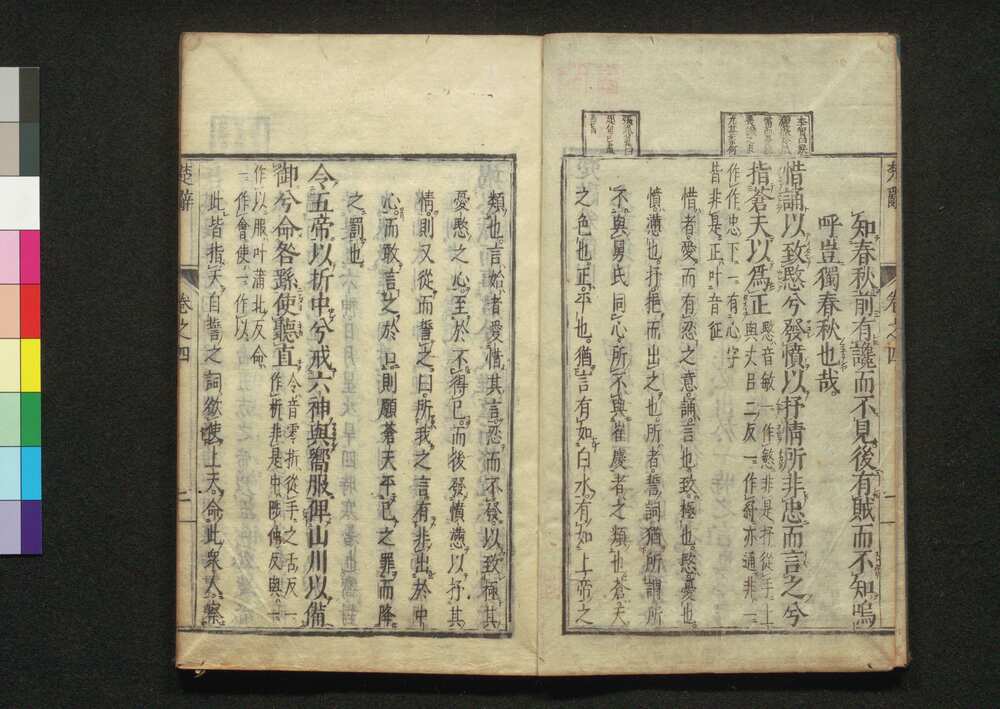 知春秋前有讒而不見後有賊而不知嗚
呼豈獨春秋也哉。
惜誦以致愍兮發憤以抒情所非忠而言之兮
指蒼天以爲正
愍音敏一作慜非是抒從手上
與丈呂二反一作紓亦通非一
作作忠下一有心字
皆非是正叶音征
惜者愛而有忍之意。誦言也。致極也。愍憂也。
憤懣也。抒挹而出之也所者。誓詞猶所謂所
不與舅氏同心所不與崔慶者之類也。蒼天
之色也。正。平也。猶言有如白水有如上帝之
楚辭
卷之四
一
類也。言始者愛惜其言忍而不發以致極其
憂愍之心。至於不得已。而後發憤懣以抒其
情。則又從而誓之曰。所我之言有非出於中
心。而敢言之於口。則願蒼天平己之罪而降
之罰也
令五帝以折中兮戒六神與嚮服俾山川以備
御兮命咎繇使聽直
令音零折從手之舌反一
作析非是中陟仲反與。一
作以服叶蒲北反命
一作會使一作以
此皆指天自誓之詞欲使上天。命此衆人。察
楚辭
卷之四
二